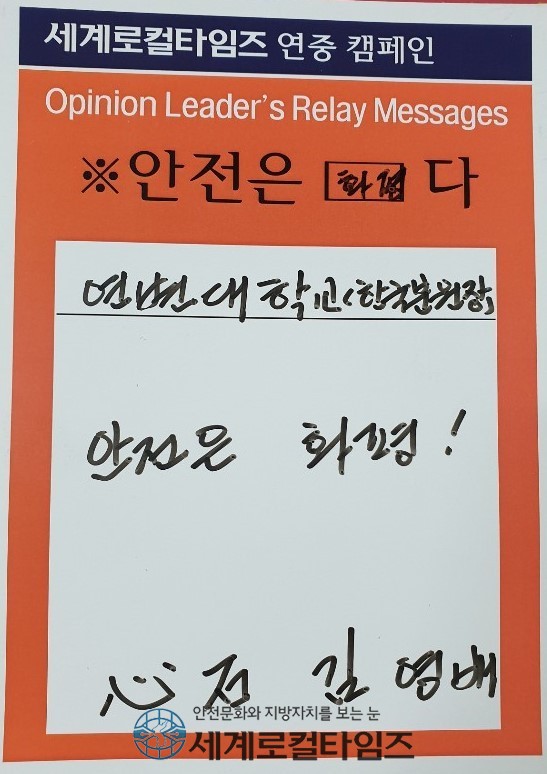 세계로컬타임즈 연중 캠페인
Opinion Leader's Relay Messages
※안전은 화평 다
연변대학교(한국분원장)
안전은 화평!
心전 김영배
안전문화와 지방자치를 보는 눈
세계로컬타임즈